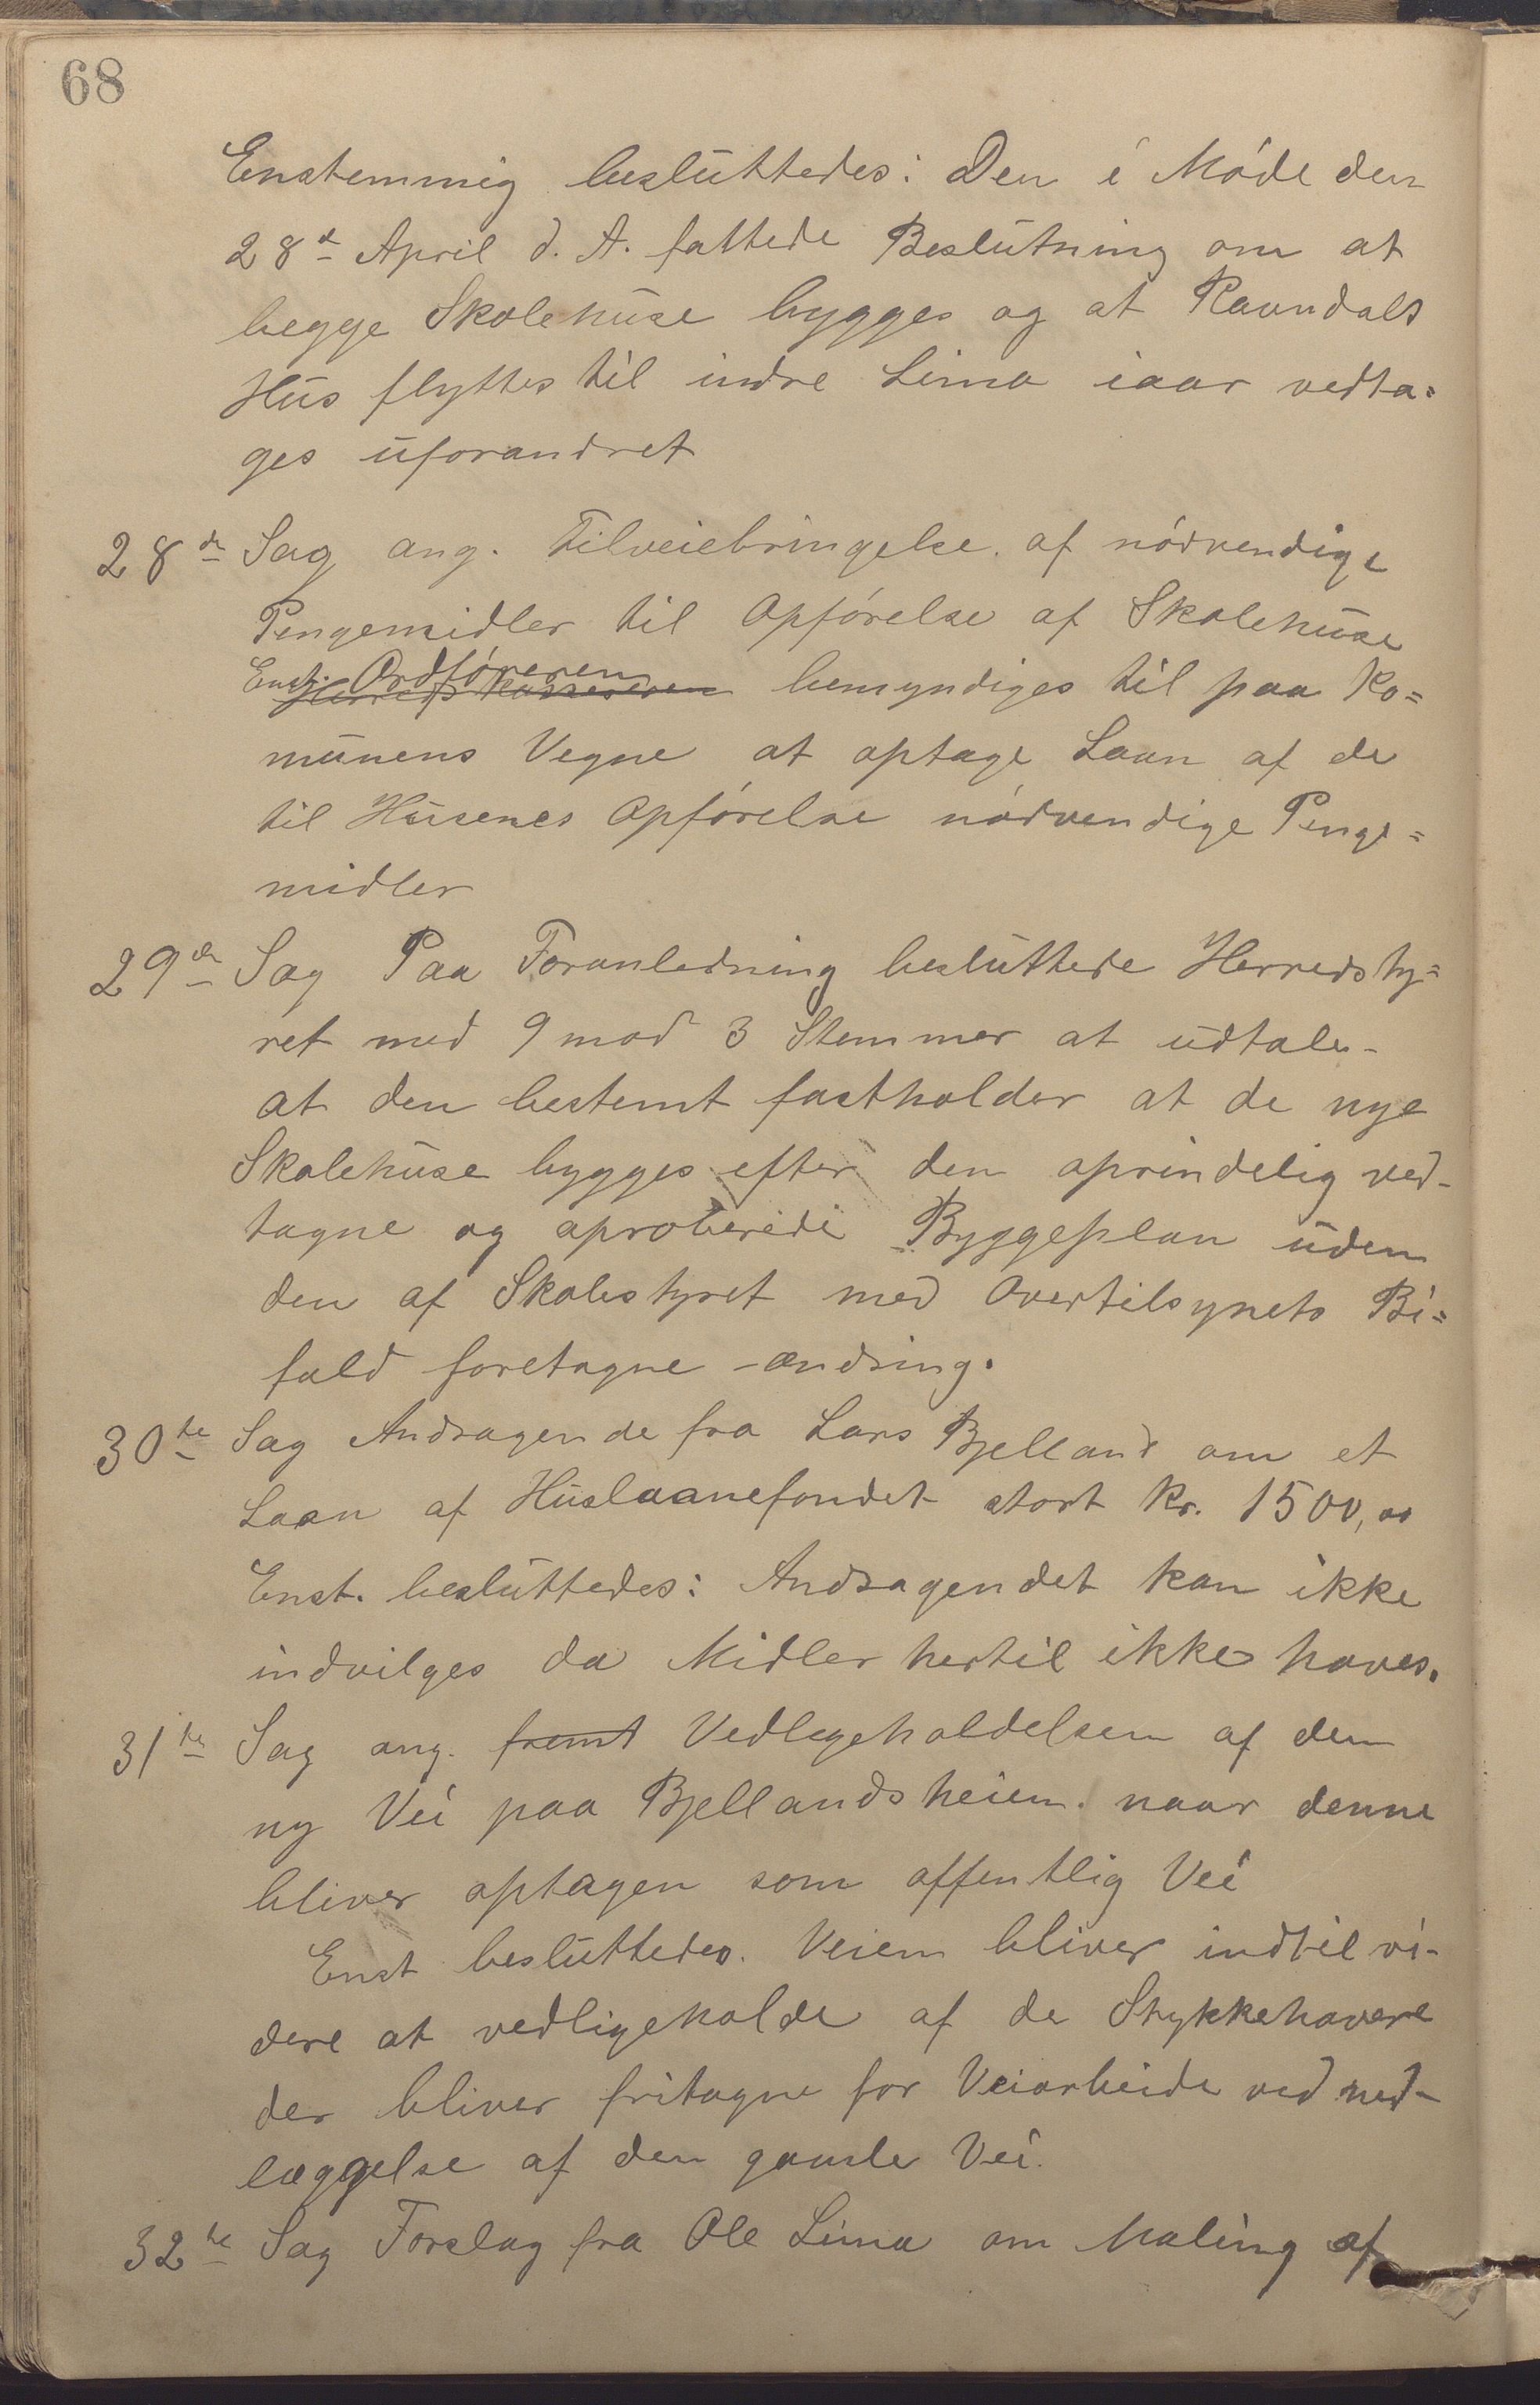 68
Enstemmig besluttedes: Den i Møde den
28de April d. A. fattede Beslutning om at
begge Skolehuse bygges og at Ravndals
Hus flyttes til indre Lima iaar vedta=
ges uforandret
28de Sag ang. Tilveiebringelse af nødvendige
Pengemidler til Opførelse af Skolehuse
Enst. Ordføreren
Herredskassereren bemyndiges til paa Ko=
munens Vegne at optage Laan af de
til Husenes Opførelse nødvendige Penge=
midler
29de Sag Paa Foranledning besluttede Herredsty=
ret med 9 mod 3 Stemmer at udtale-
at den bestemt fastholder at de nye
Skolehuse bygges efter den oprindelig ved-
tagne og aproberede Byggeplan uden
den af Skolestyret med Overtilsynets Bi=
fald foretagne ændring.
30te Sag Andragende fra Lars Bjelland om et
Laan af Huslaanefondet stort Kr. 1500,00
Enst. besluttedes: Andragendet kan ikke
indvilges da Midler hertil ikke haves.
31te Sag ang. fremt Vedlegeholdelsen af den
ny Vei paa Bjellandsheien. naar denne
bliver optagen som offentlig Vei
Enst besluttedes. Veien bliver indtil vi-
dere at vedligeholde af de Stykkehavere
der bliver fritagne for Veiarbeide ved ned-
læggelse af den gamle Vei.
32te Sag Forslag fra Ole Lima om Maling af